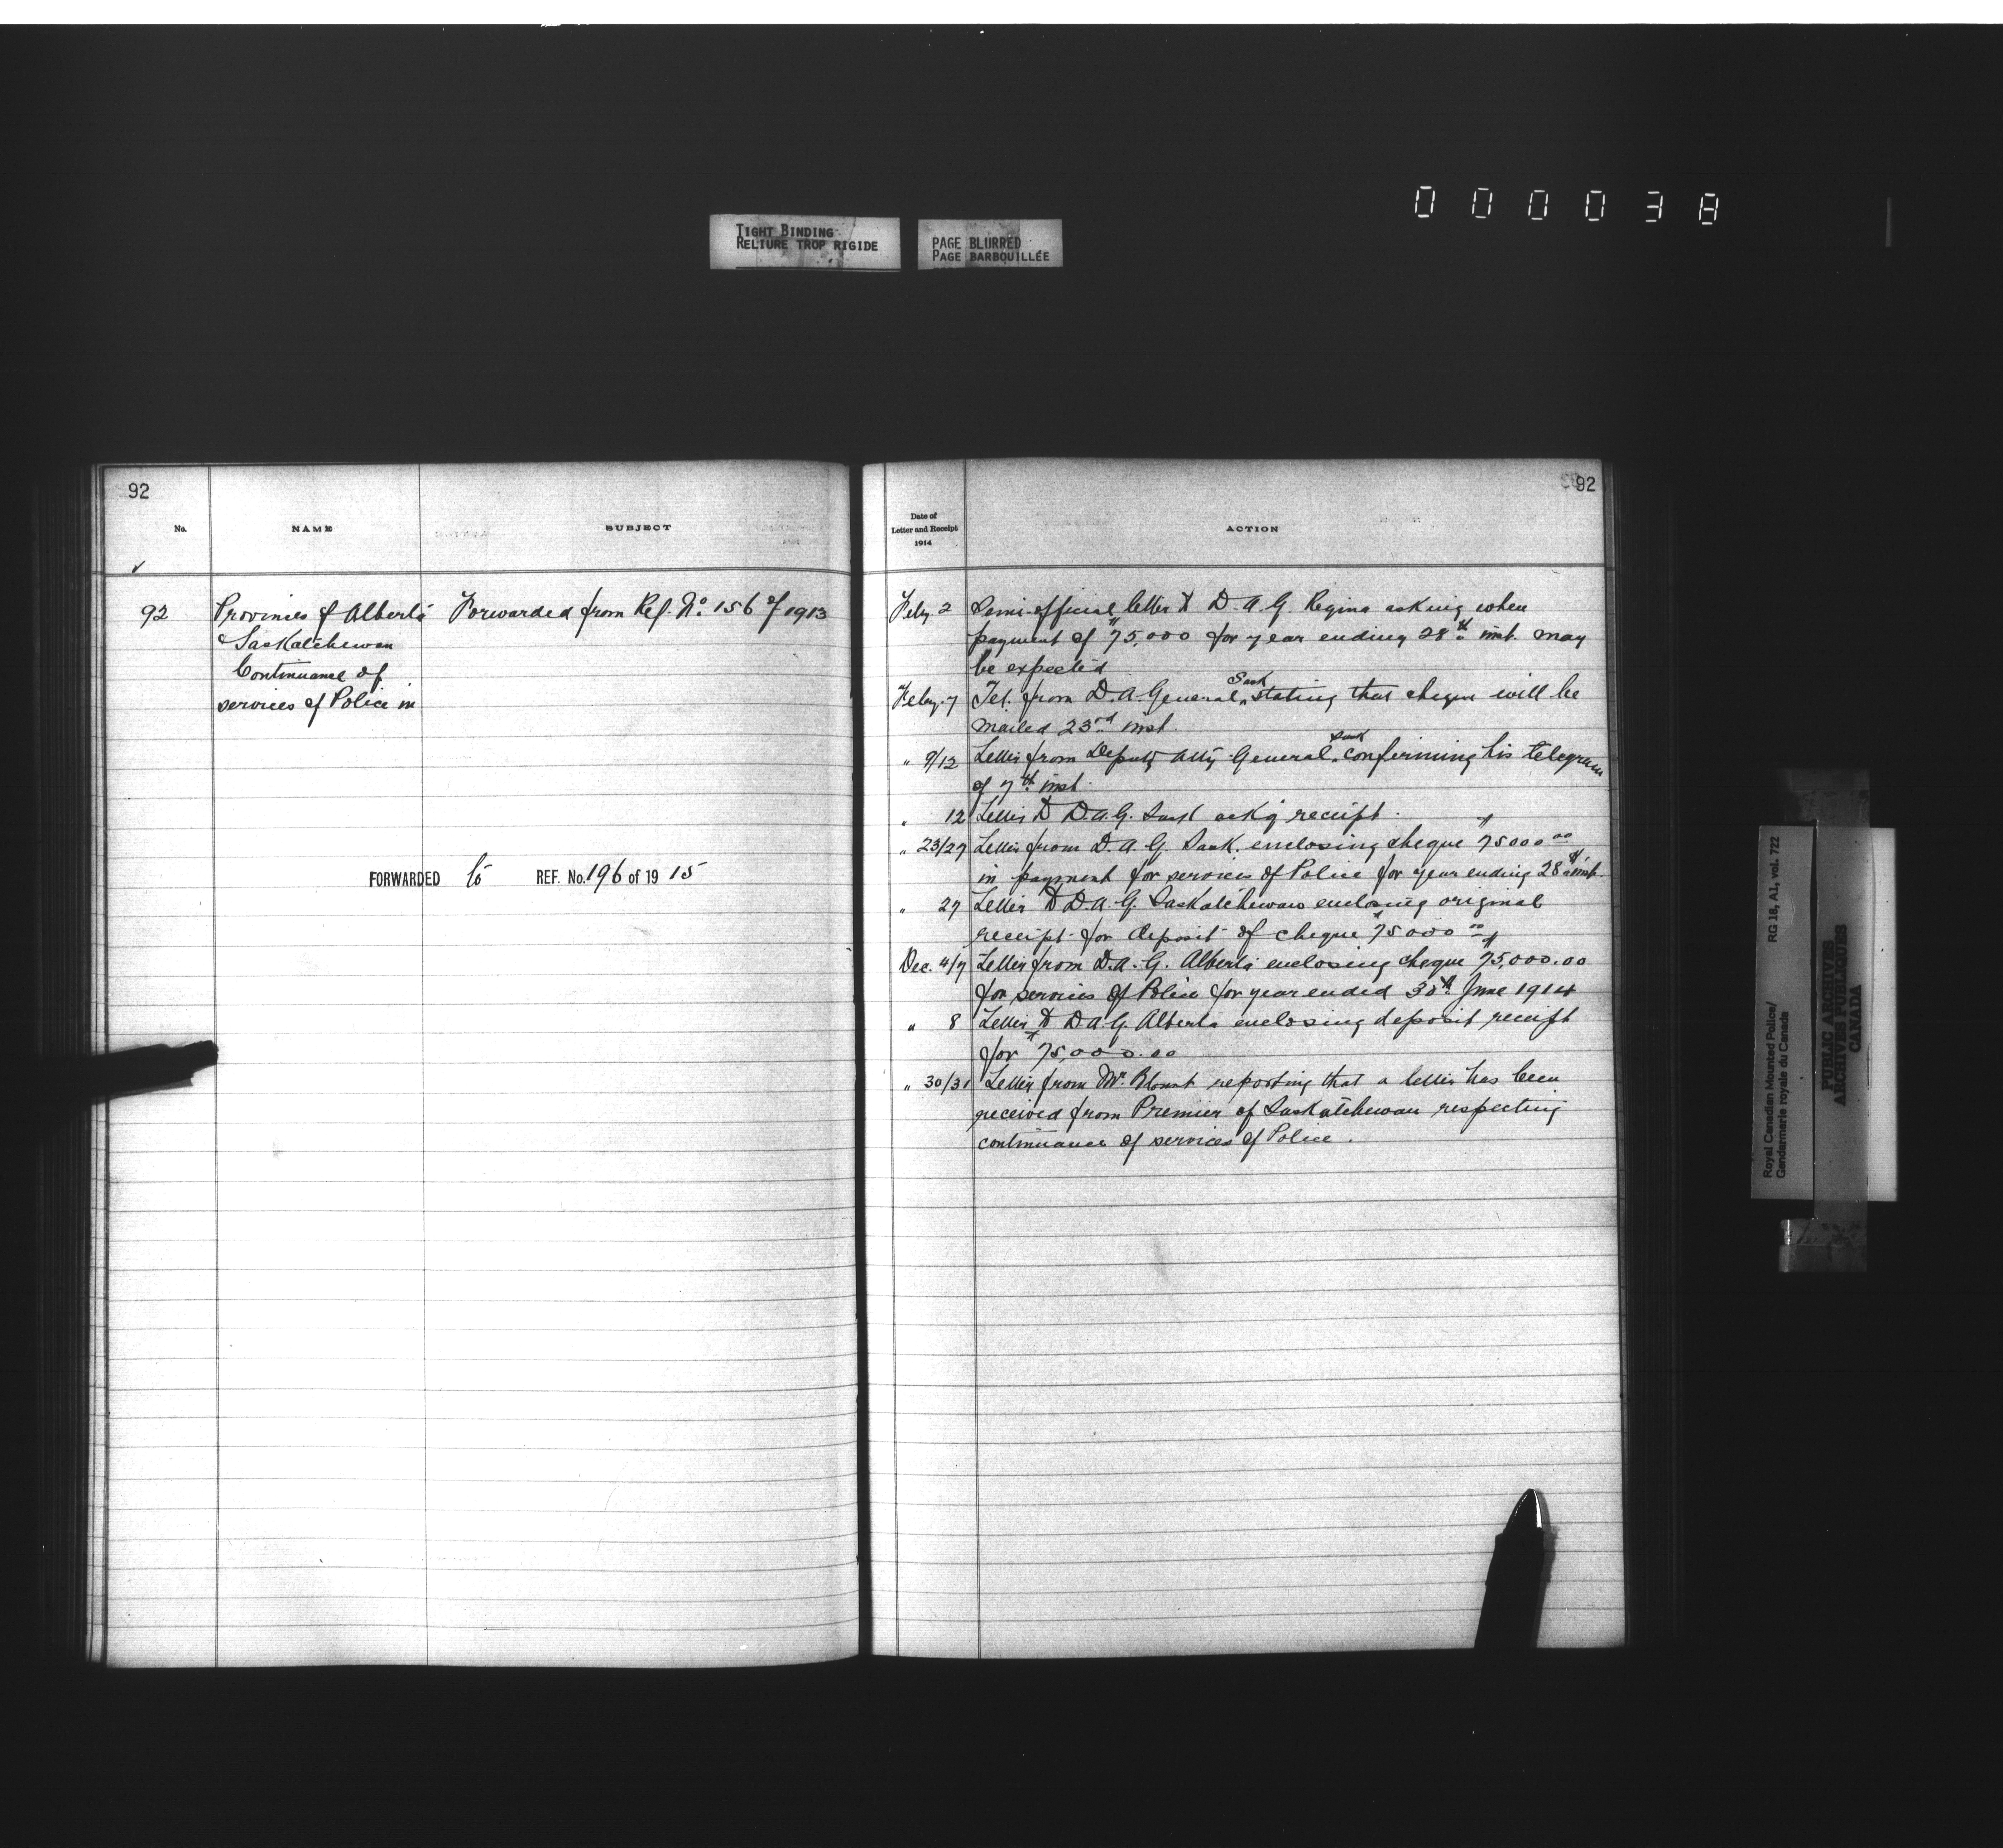 000038
TIGHT BINDING
RELIURE TROP RIGIDE
PAGE BLURRED
PAGE BARBOUILLÉE
92
No.
NAME
SUBJECT
92
Provinces of Alberta
& Saskatchewan
Continuance of
services of Police in
Forwarded from Ref. No. 156 of 1913
FORWARDED to REF. No. 196 of 1915
92
Date of
Letter and Receipt
1914
ACTION
Feby. 2 Semi-official letter to D.A.G. Regina asking when
payment of $75,000 for year ending 28th inst. may
be expected
Feby. 7 Tel. from D.A. General Sask stating that cheque will be
mailed 23rd inst.
" 9/12 Letter from Deputy Atty General Sask confirming his telegram
of 7th inst.
" 12 Letter to D.A.G. Sask ack'g receipt.
" 23/27 Letter from D.A.G. Sask. enclosing cheque $75000 00
in payment for services of Police for year ending 28th inst.
" 27 Letter to D.A.G. Saskatchewan enclosing original
receipt for deposit of cheque $75000 00
Dec. 4/7 Letter from D.A.G. Alberta enclosing cheque $75,000.00
for services of Police for year ended 30th June 1914
" 8 Letter to D.A.G. Alberta enclosing deposit receipt
for $75,000.00
" 30/31 Letter from Mr. Blount reporting that a letter has been
received from Premier of Saskatchewan respecting
continuance of services of Police.
Royal Canadian Mounted Police/
Gendarmerie royale du Canada
RG 18, A1, vol. 722
PUBLIC ARCHIVES
ARCHIVES PUBLIQUES
CANADA